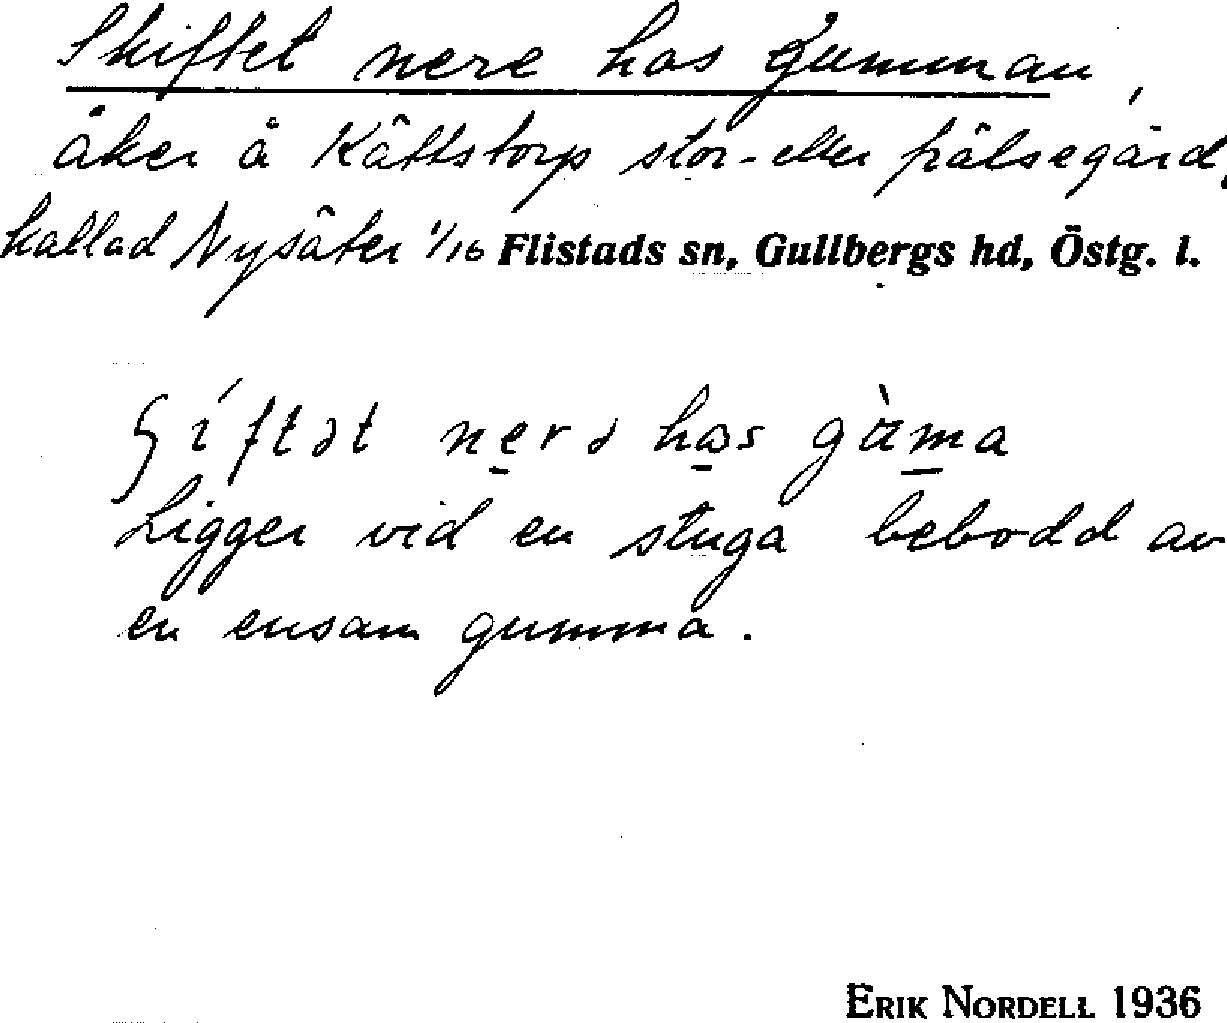 Skiftet nere hos gumman,
åker å Kättstorp stor- eller frälsegård,
kallad Nysäter 1/16 Flistads sn, Gullbergs hd, Östg. l.
nerə hos
Ligger vid en stuga bebodd av
en ensam gumma.
ERIK NORDELL 1936